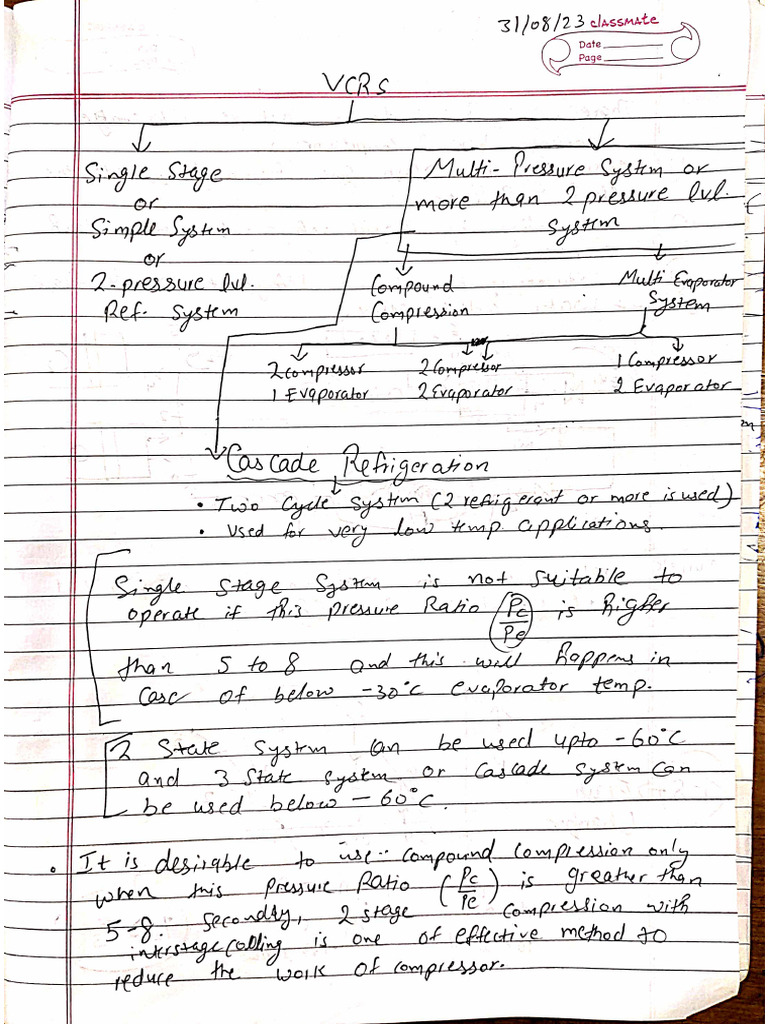 31/08/23 classmate
Date
Page
VCRS
Single Stage
or
Simple System
or
2-pressure lvl.
Ref. System
Multi-Pressure System or
more than 2 pressure lvl.
System
Compound
Compression
Multi Evaporator
System
2 Compressor
1 Evaporator
2 Compressor
2 Evaporator
1 Compressor
2 Evaporator
Cascade Refrigeration
• Two Cycle System (2 refrigerant or more is used)
• Used for very low temp applications.
Single Stage System is not suitable to
operate if this pressure Ratio Pc/Pe is higher
than 5 to 8 and this will happens in
case of below -30°C evaporator temp.
2 State System can be used upto -60°C
and 3 State system or Cascade system can
be used below -60°C.
• It is desirable to use compound compression only
when this Pressure Ratio (Pc/Pe) is greater than
5-8. Secondly, 2 stage compression with
interstage colling is one of effective method to
reduce the work of compressor.